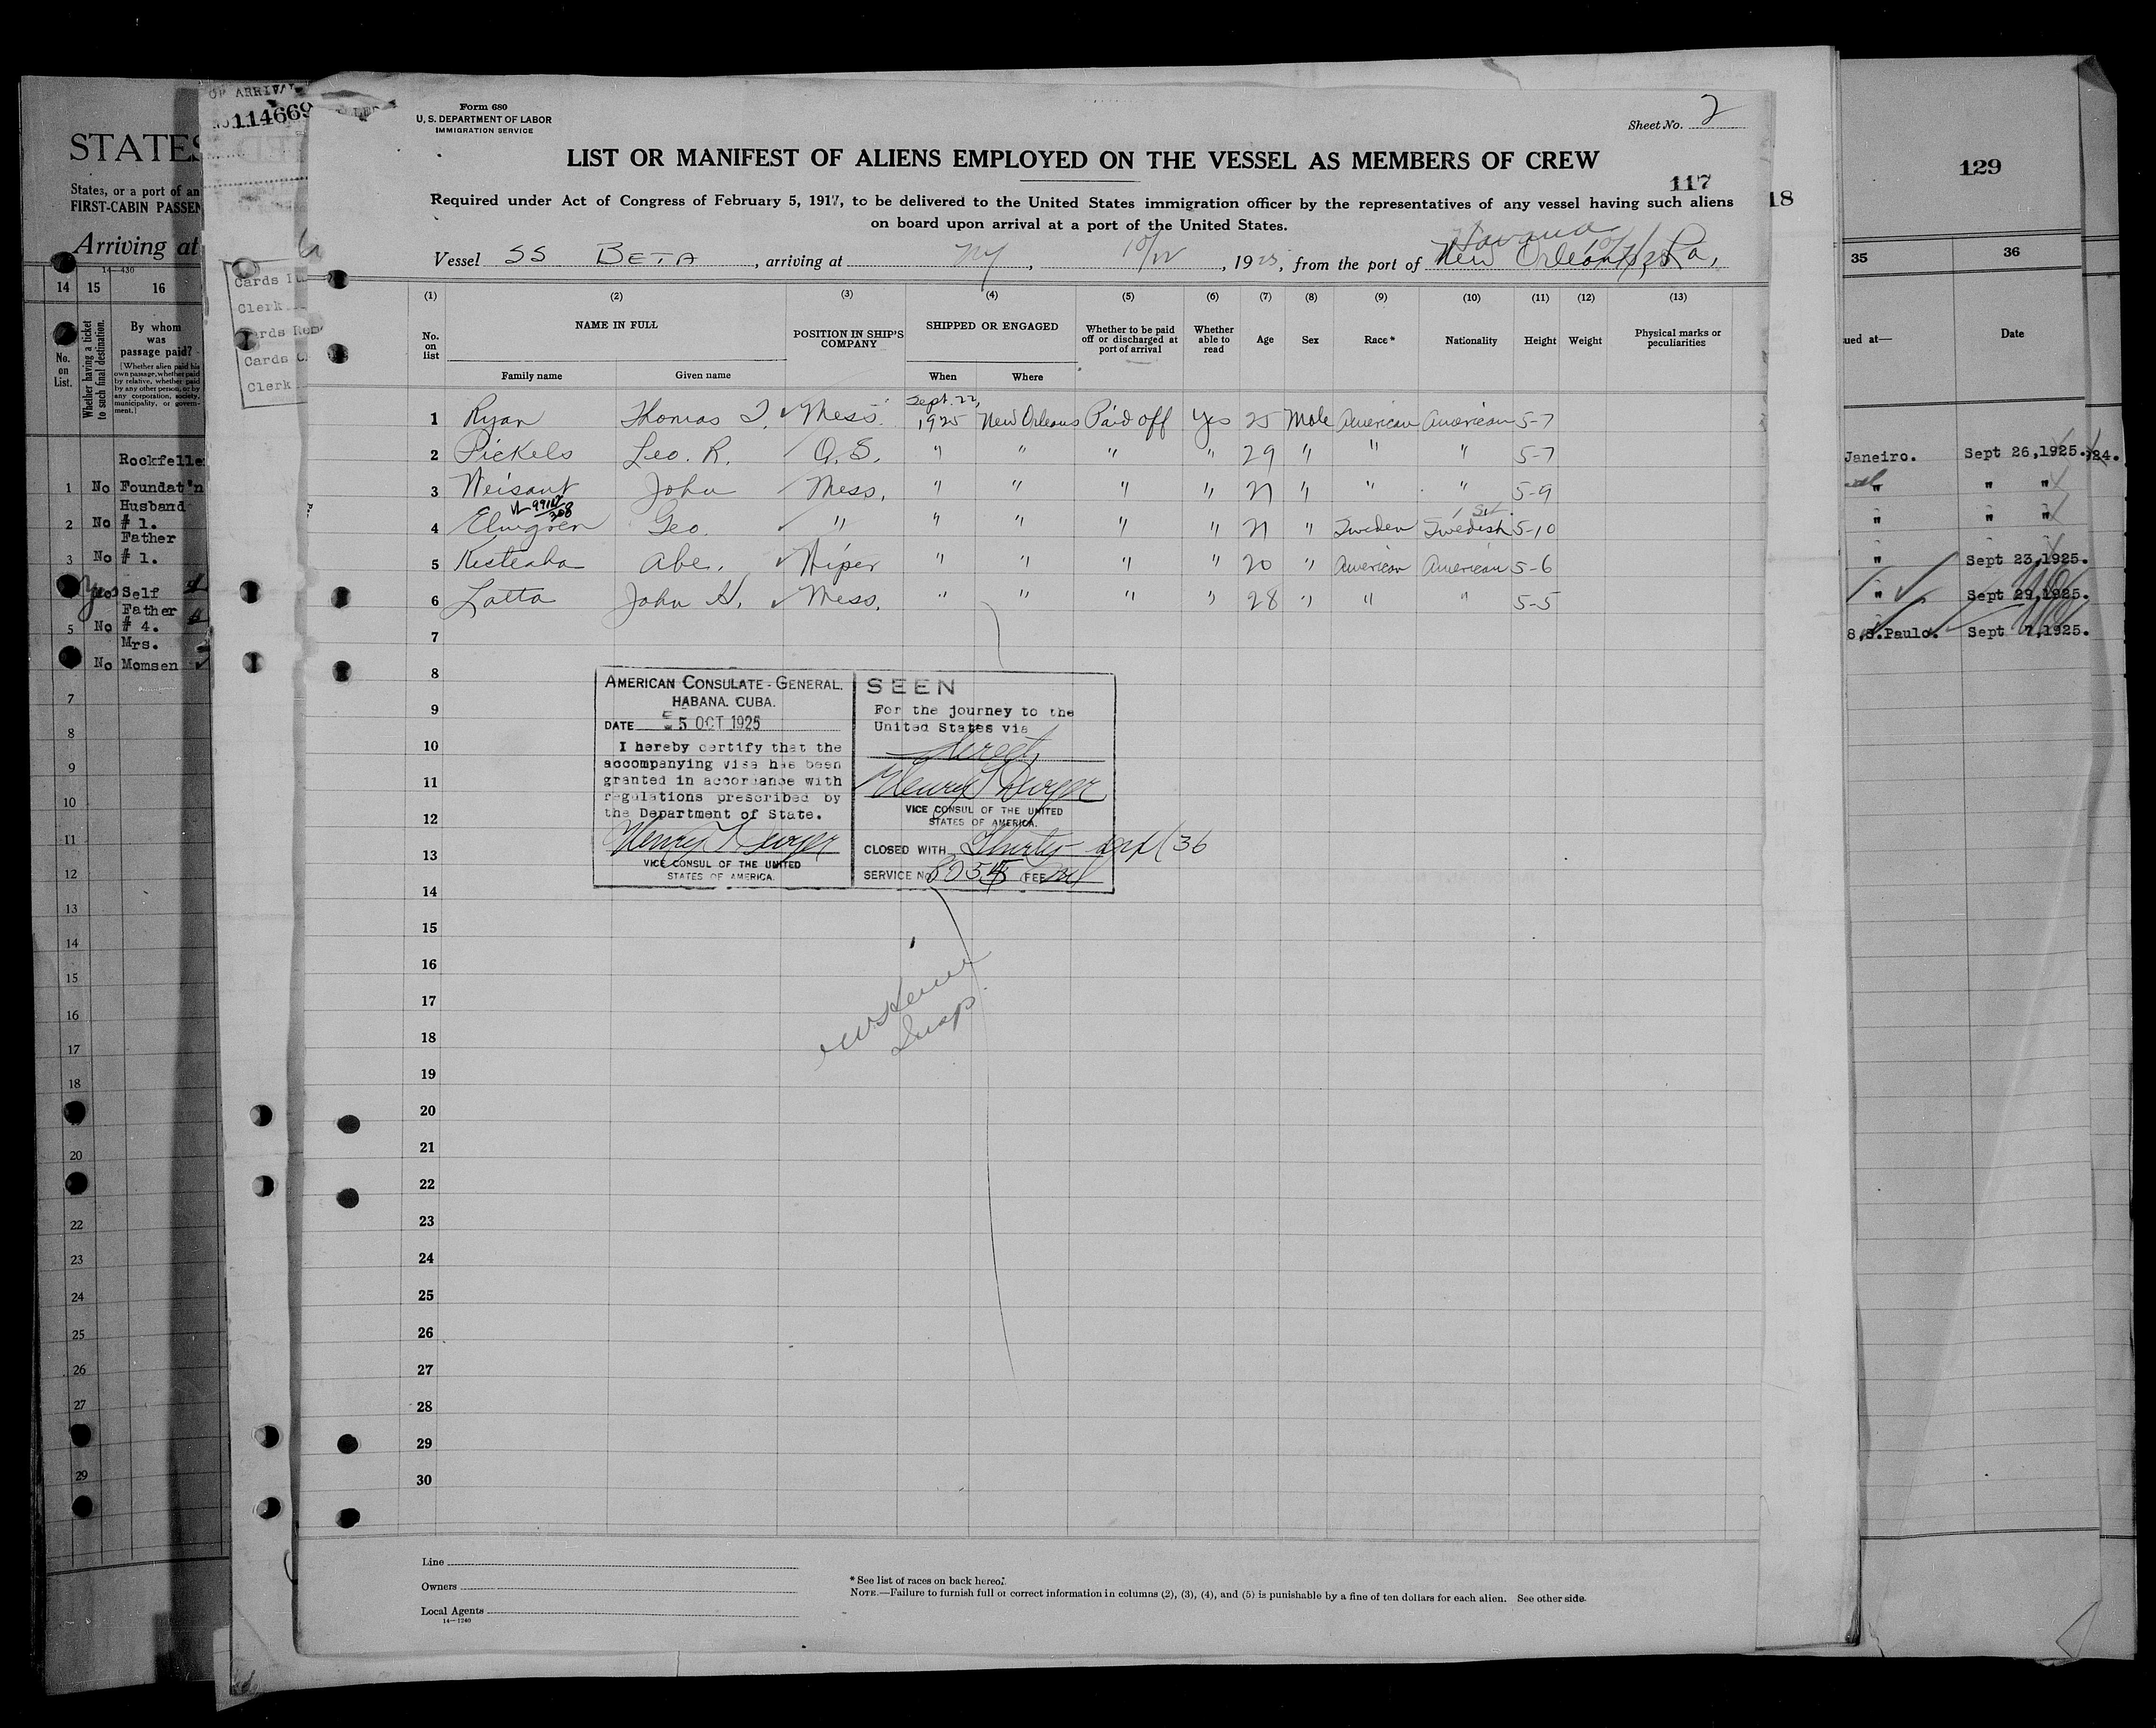 OF ARRIVAL
114669
STATES
States, or a port of an
FIRST-CABIN PASSEN
Arriving at
14—430
14 15 16
No. on List.
Whether having a ticket to such final destination.
By whom was passage paid?
[Whether alien paid his own passage, whether paid by relative, whether paid by any other person, or by any corporation, society, municipality, or government.]
Rockfelle
1 No Foundat'n
Husband
2 No # 1.
Father
3 No # 1.
Yes Self
Father
5 No # 4.
Mrs.
No Momsen
7
8
9
10
11
12
13
14
15
16
17
18
20
22
23
24
25
26
27
29
Clerk
Cards
Clerk
Form 680
U. S. DEPARTMENT OF LABOR
IMMIGRATION SERVICE
Sheet No. 2
LIST OR MANIFEST OF ALIENS EMPLOYED ON THE VESSEL AS MEMBERS OF CREW
117
18
Required under Act of Congress of February 5, 1917, to be delivered to the United States immigration officer by the representatives of any vessel having such aliens
on board upon arrival at a port of the United States.
Havana
Vessel SS BETA, arriving at NY, 10/12, 1925, from the port of New Orleans, La,
(1) (2) (3) (4) (5) (6) (7) (8) (9) (10) (11) (12) (13)
No. on list
NAME IN FULL
Family name Given name
POSITION IN SHIP'S COMPANY
SHIPPED OR ENGAGED
When Where
Whether to be paid off or discharged at port of arrival
Whether able to read
Age Sex Race* Nationality Height Weight
Physical marks or peculiarities
Sept. 22,
1 Ryan Thomas J. Mess. 1925 New Orleans Paid off Yes 25 Male American American 5-7
2 Pickels Leo. R. O.S. " " " " 29 " " " 5-7
3 Weisant John Mess. " " " " 21 " " " 5-9
4 Elmgren Geo. " " " " " 21 " Sweden Swedish 5-10
5 Kesteaha Abe. Wiper " " " " 20 " American American 5-6
6 Latta John H. Mess. " " " " 28 " " " 5-5
7
8
9
10
11
12
13
14
15
16
17
18
19
20
21
22
23
24
25
26
27
28
29
30
AMERICAN CONSULATE-GENERAL.
HABANA. CUBA.
DATE 5 OCT 1925
I hereby certify that the
accompanying visa has been
granted in accordance with
regulations prescribed by
the Department of State.
VICE CONSUL OF THE UNITED
STATES OF AMERICA.
SEEN
For the journey to the
United States via
direct
VICE CONSUL OF THE UNITED
STATES OF AMERICA.
CLOSED WITH
SERVICE No. FEE
Insp.
Line
Owners
Local Agents
14—1240
* See list of races on back hereof.
NOTE.—Failure to furnish full or correct information in columns (2), (3), (4), and (5) is punishable by a fine of ten dollars for each alien. See other side.
129
35 36
ued at— Date
Janeiro. Sept 26,1925. 924.
" " "
" " "
" Sept 23,1925.
" Sept 29,1925.
S.Paulo. Sept 7,1925.